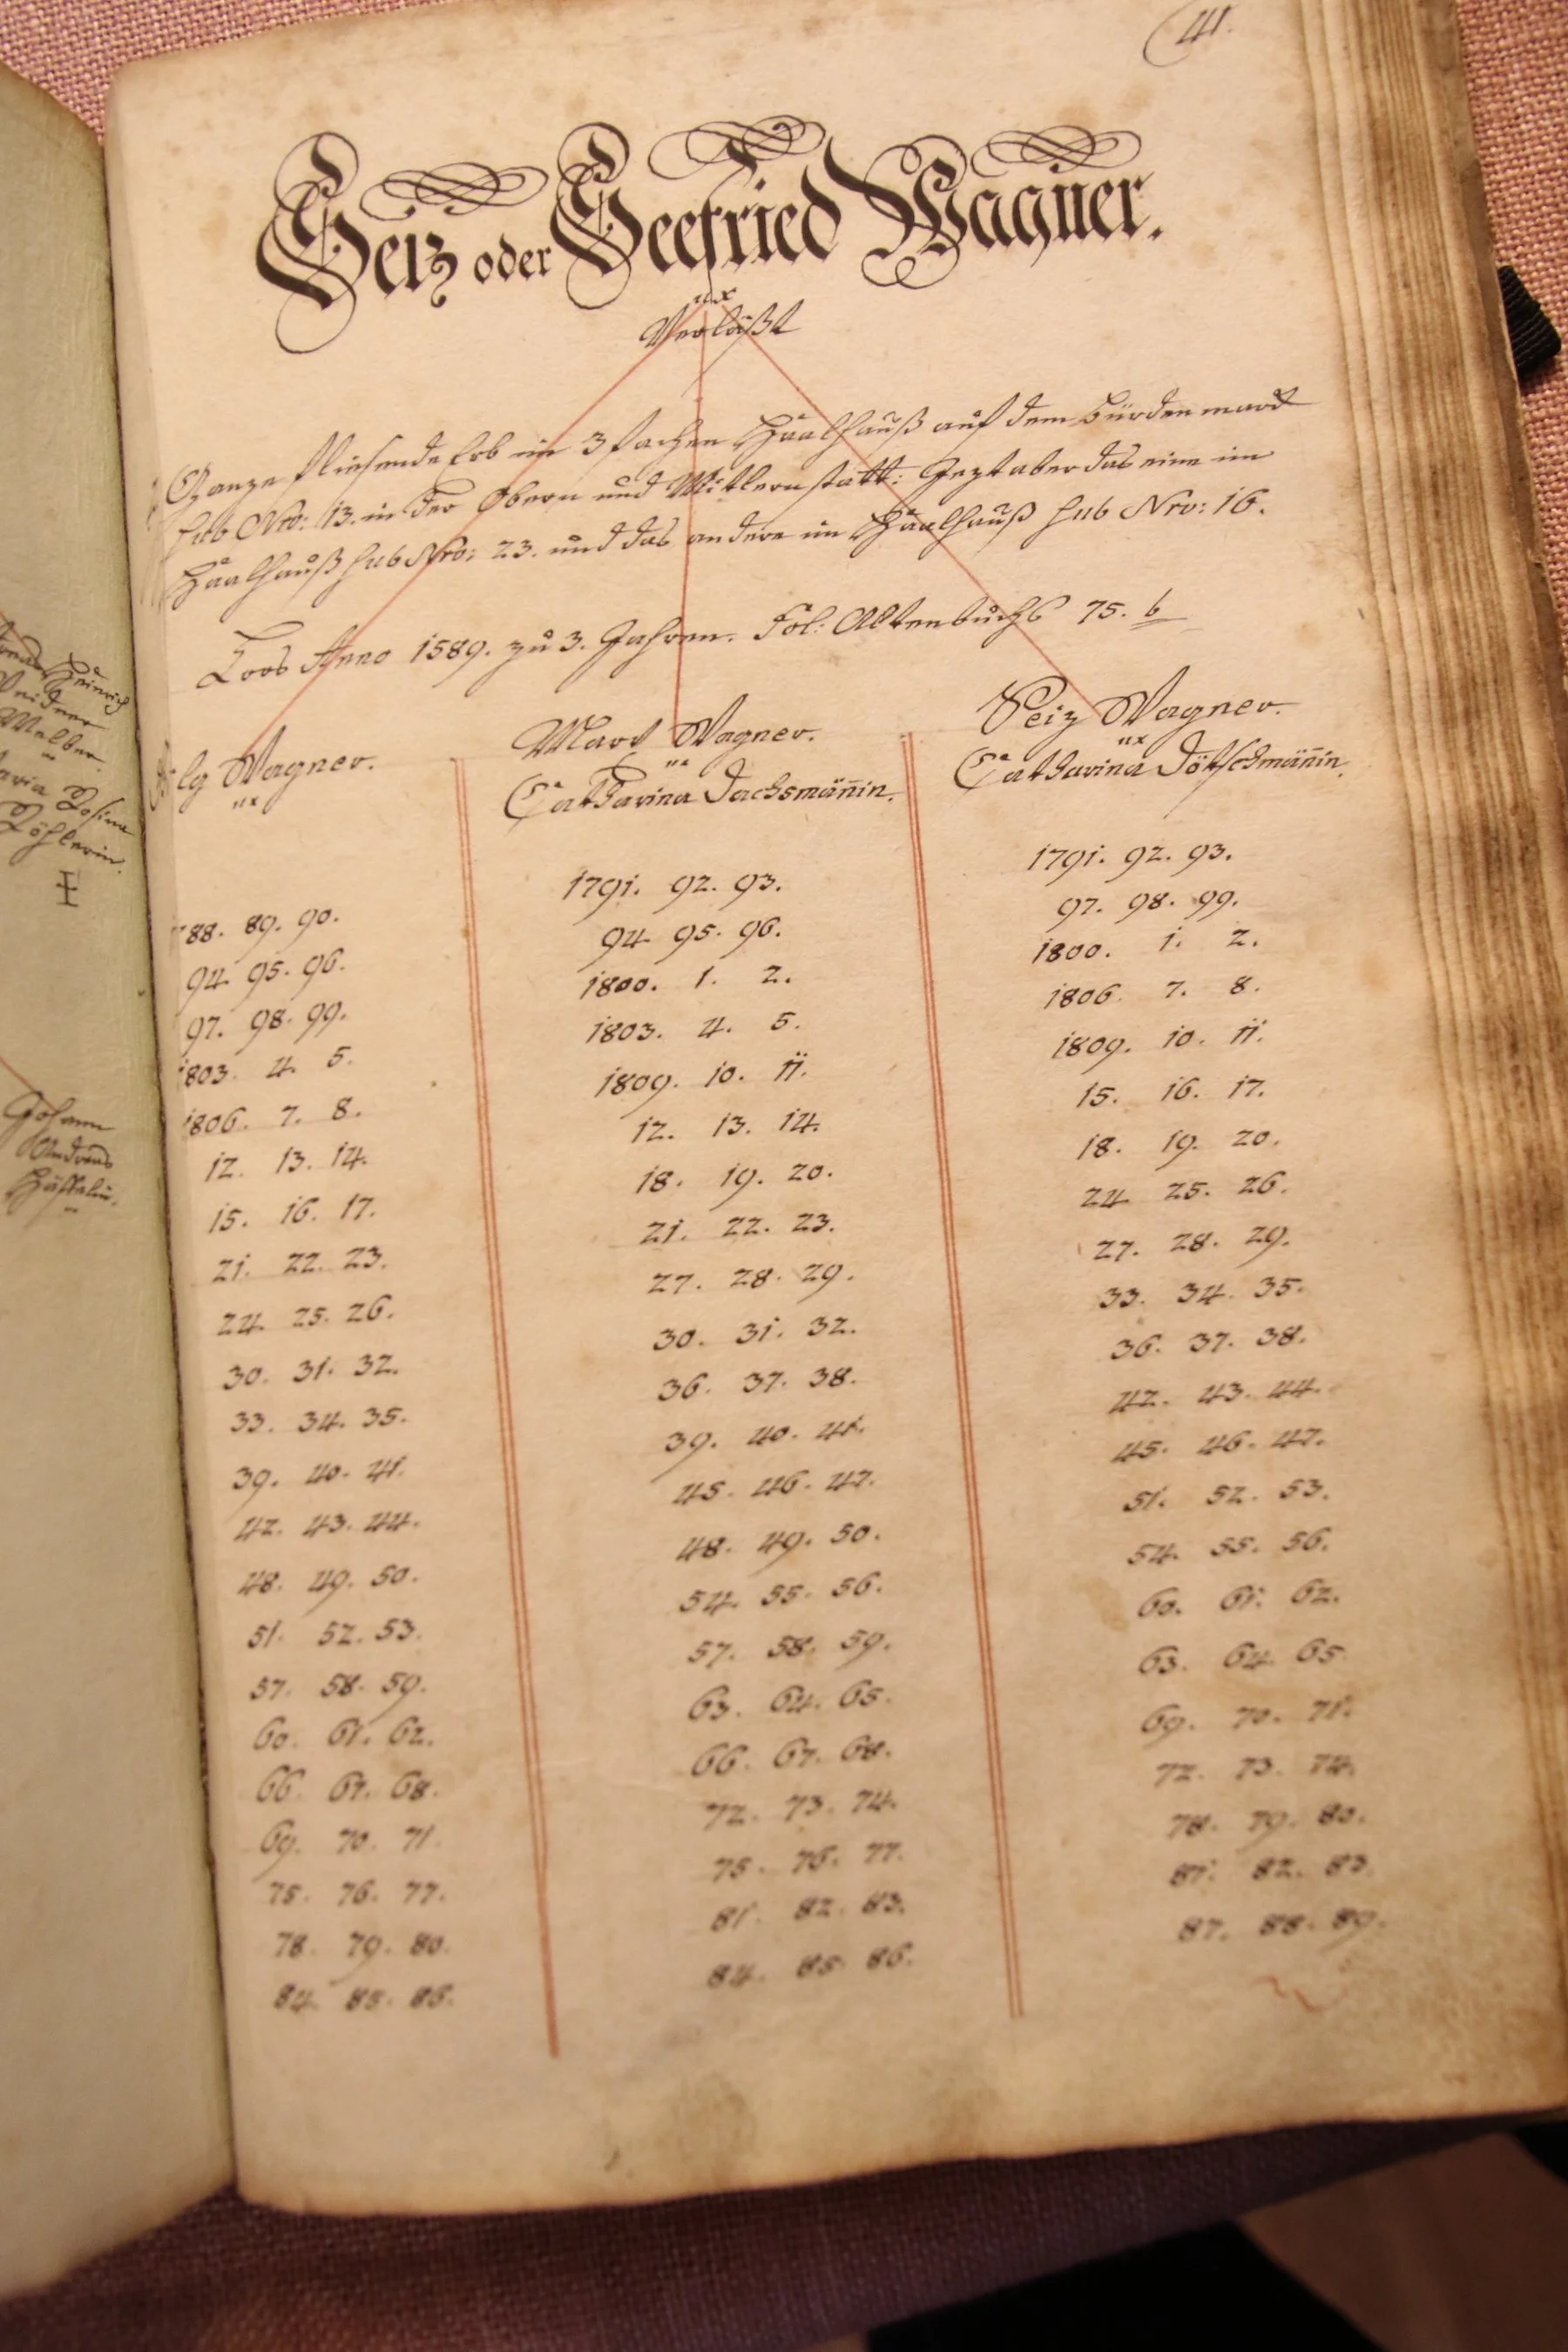 41.
Seiz oder Seefried Wagner.
ux
Verläßt
Ganze fliesende Erb in 3 fachen Haalhauß auf dem Bürdenmarck
sub Nro: 13. in der Obern und Mitlern statt: Jezt aber das eine im
Haalhauß sub Nro: 23. und das andere im Haalhauß sub Nro: 16.
Loos Anno 1589. zu 3. Jahren. Fol: Altenbuchs 75. b
lg Wagner.
ux
88. 89. 90.
94. 95. 96.
97. 98. 99.
1803. 4. 5.
1806. 7. 8.
12. 13. 14.
15. 16. 17.
21. 22. 23.
24. 25. 26.
30. 31. 32.
33. 34. 35.
39. 40. 41.
42. 43. 44.
48. 49. 50.
51. 52. 53.
57. 58. 59.
60. 61. 62.
66. 67. 68.
69. 70. 71.
75. 76. 77.
78. 79. 80.
84. 85. 86.
Marx Wagner.
ux
Catharina Dachsmännin.
1791. 92. 93.
94. 95. 96.
1800. 1. 2.
1803. 4. 5.
1809. 10. 11.
12. 13. 14.
18. 19. 20.
21. 22. 23.
27. 28. 29.
30. 31. 32.
36. 37. 38.
39. 40. 41.
45. 46. 47.
48. 49. 50.
54. 55. 56.
57. 58. 59.
63. 64. 65.
66. 67. 68.
72. 73. 74.
75. 76. 77.
81. 82. 83.
84. 85. 86.
Seiz Wagner.
ux
Catharina Dötschmännin.
1791. 92. 93.
97. 98. 99.
1800. 1. 2.
1806. 7. 8.
1809. 10. 11.
15. 16. 17.
18. 19. 20.
24. 25. 26.
27. 28. 29.
33. 34. 35.
36. 37. 38.
42. 43. 44.
45. 46. 47.
51. 52. 53.
54. 55. 56.
60. 61. 62.
63. 64. 65.
69. 70. 71.
72. 73. 74.
78. 79. 80.
81. 82. 83.
87. 88. 89.
Heinrich
Johann
Andreas